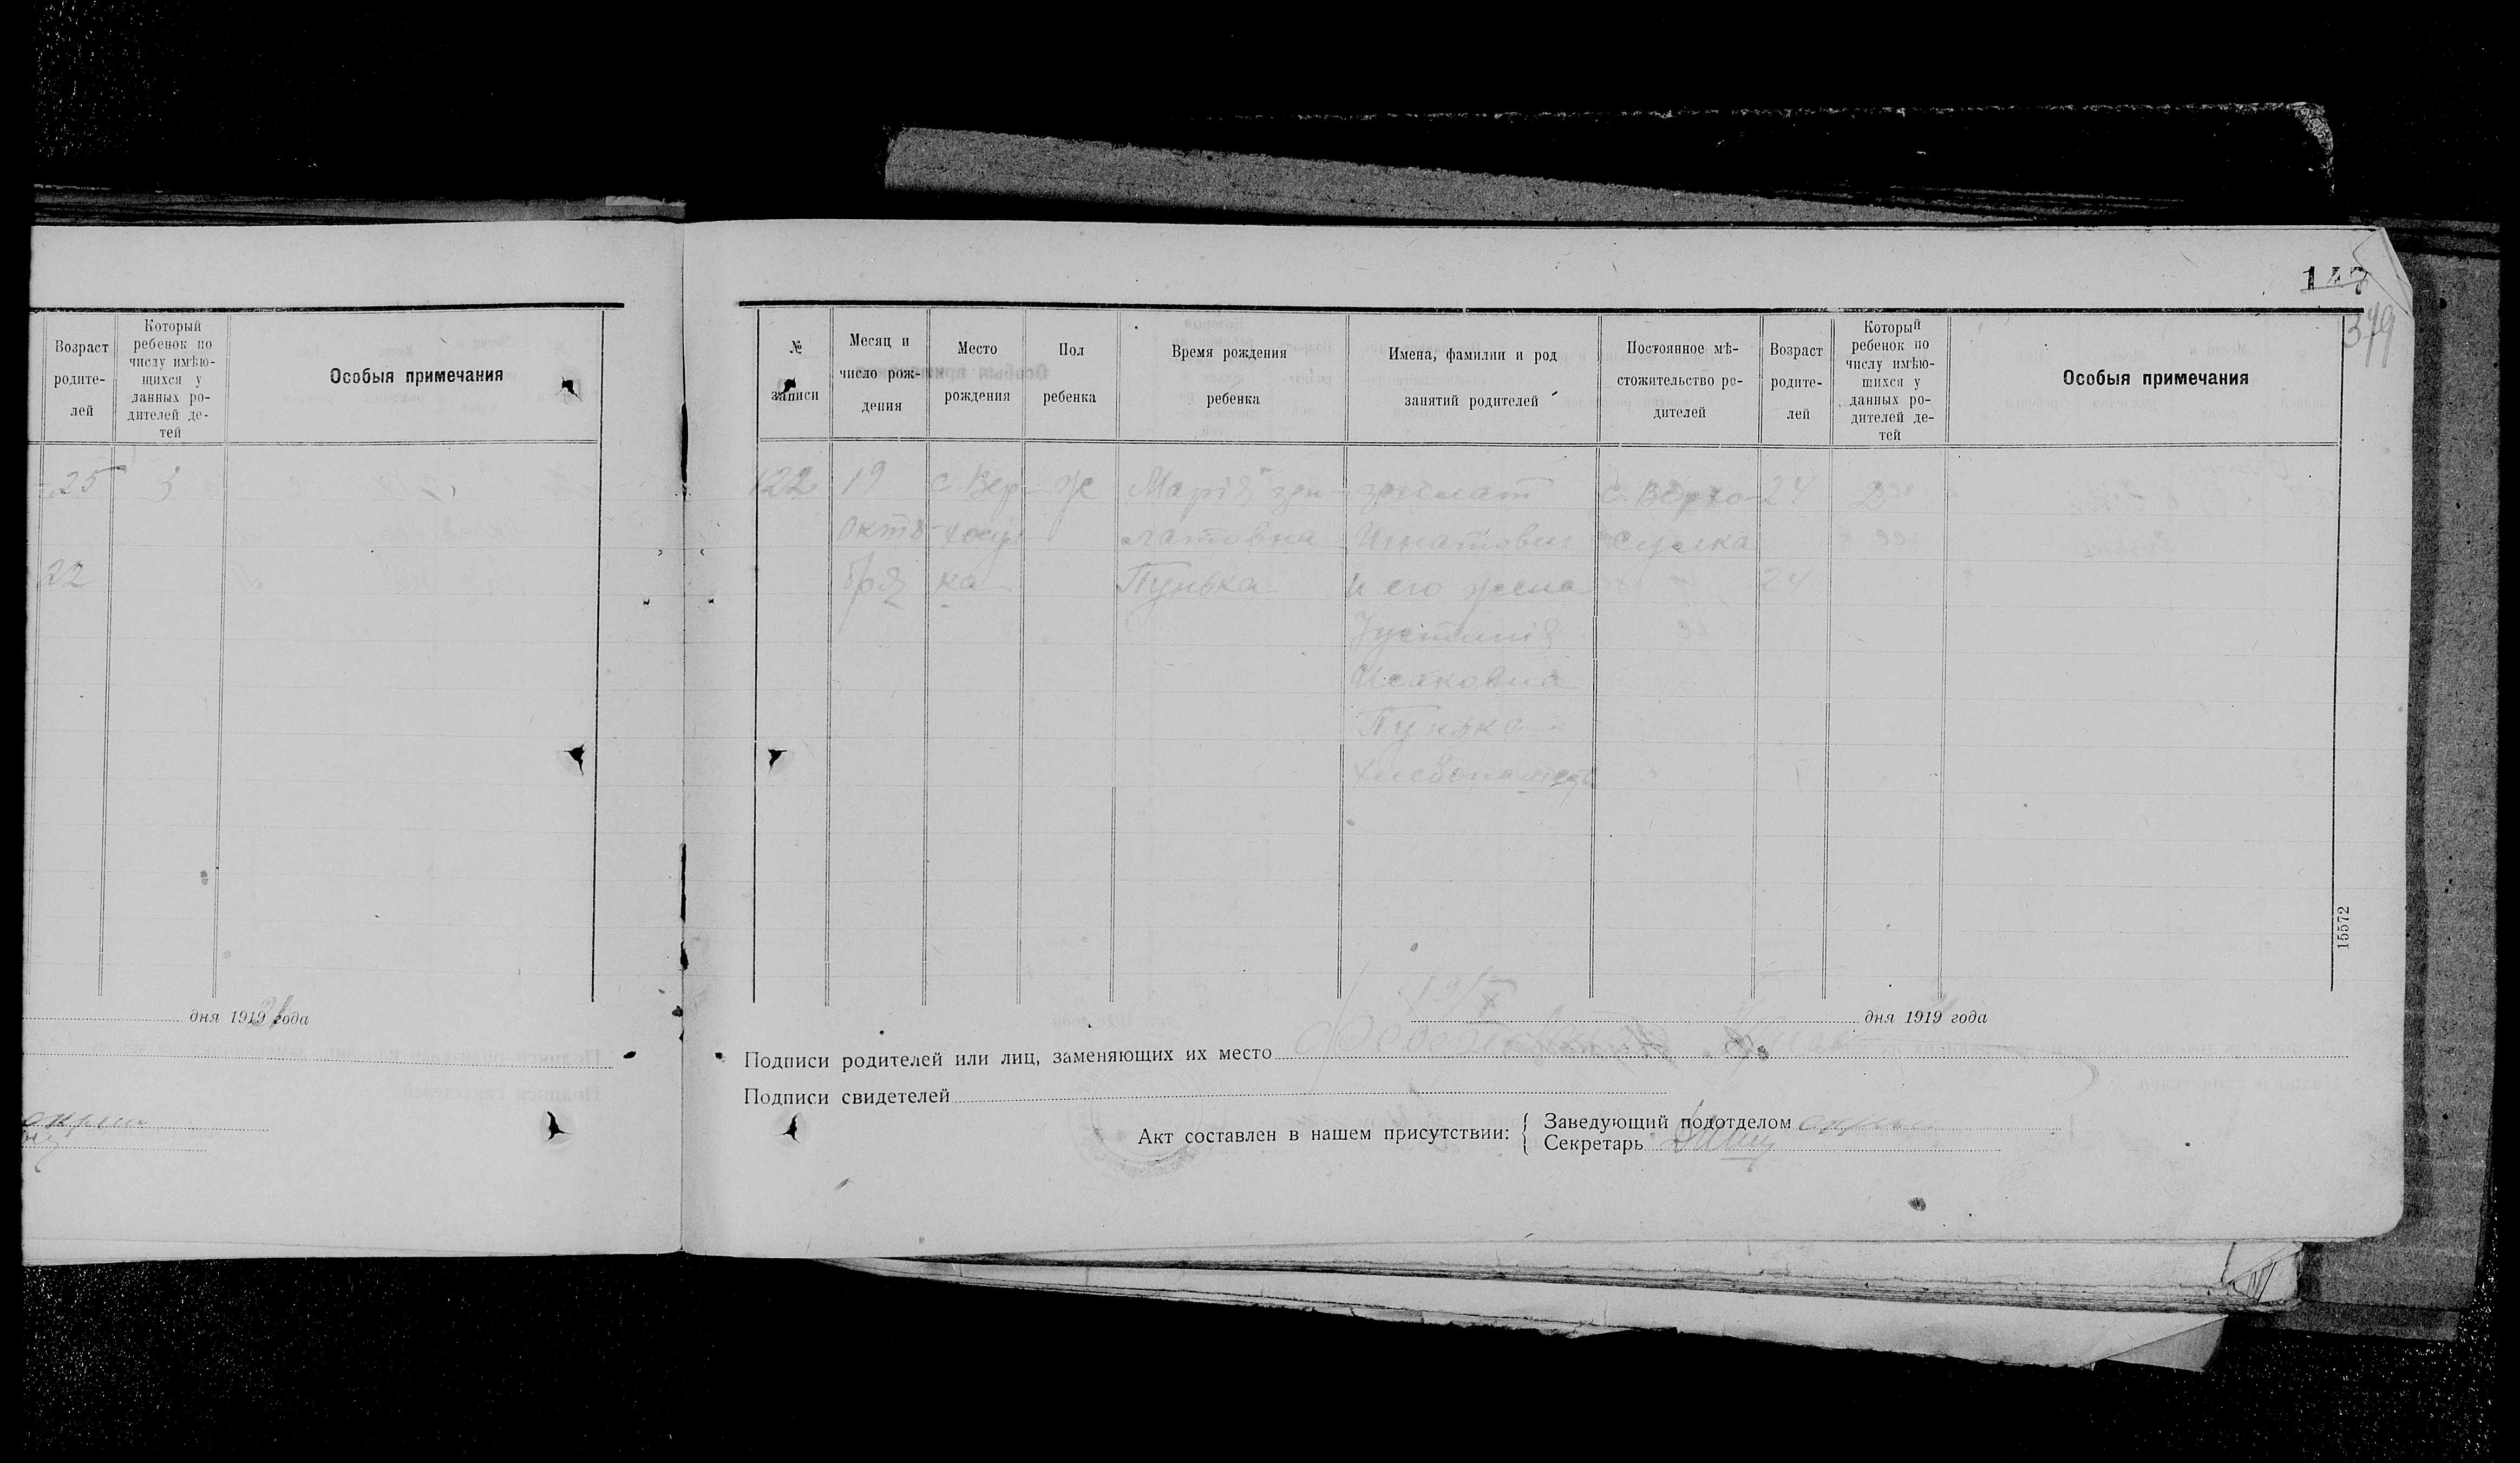 Возраст
родите-
лей
Который
ребенок по
числу имѣю-
щихся у
данных ро-
дителей де-
тей
Особыя примечания
25 3
22
дня 1919 года
147
349
№
записи
Месяц и
число рож-
дения
Место
рождения
Пол
ребенка
Время рождения
ребенка
Имена, фамилии и род
занятий родителей
Постоянное мѣ-
стожительство ро-
дителей
Возраст
родите-
лей
Который
ребенок по
числу имѣю-
шихся у
данных ро-
дителей де-
тей
Особыя примечания
122
19
октя-
бря
с. Вер-
хосул
ка
же
Марія
латовна
Пунька
Игнатович
и его жена
Устинія
Исаковна
Пунька
хлебопашец
с. Верхо-
сулка
24
24
2
15572
19/X
дня 1919 года
Подписи родителей или лиц, заменяющих их место
Подписи свидетелей
Акт составлен в нашем присутствии:
Заведующий подотделом
Секретарь